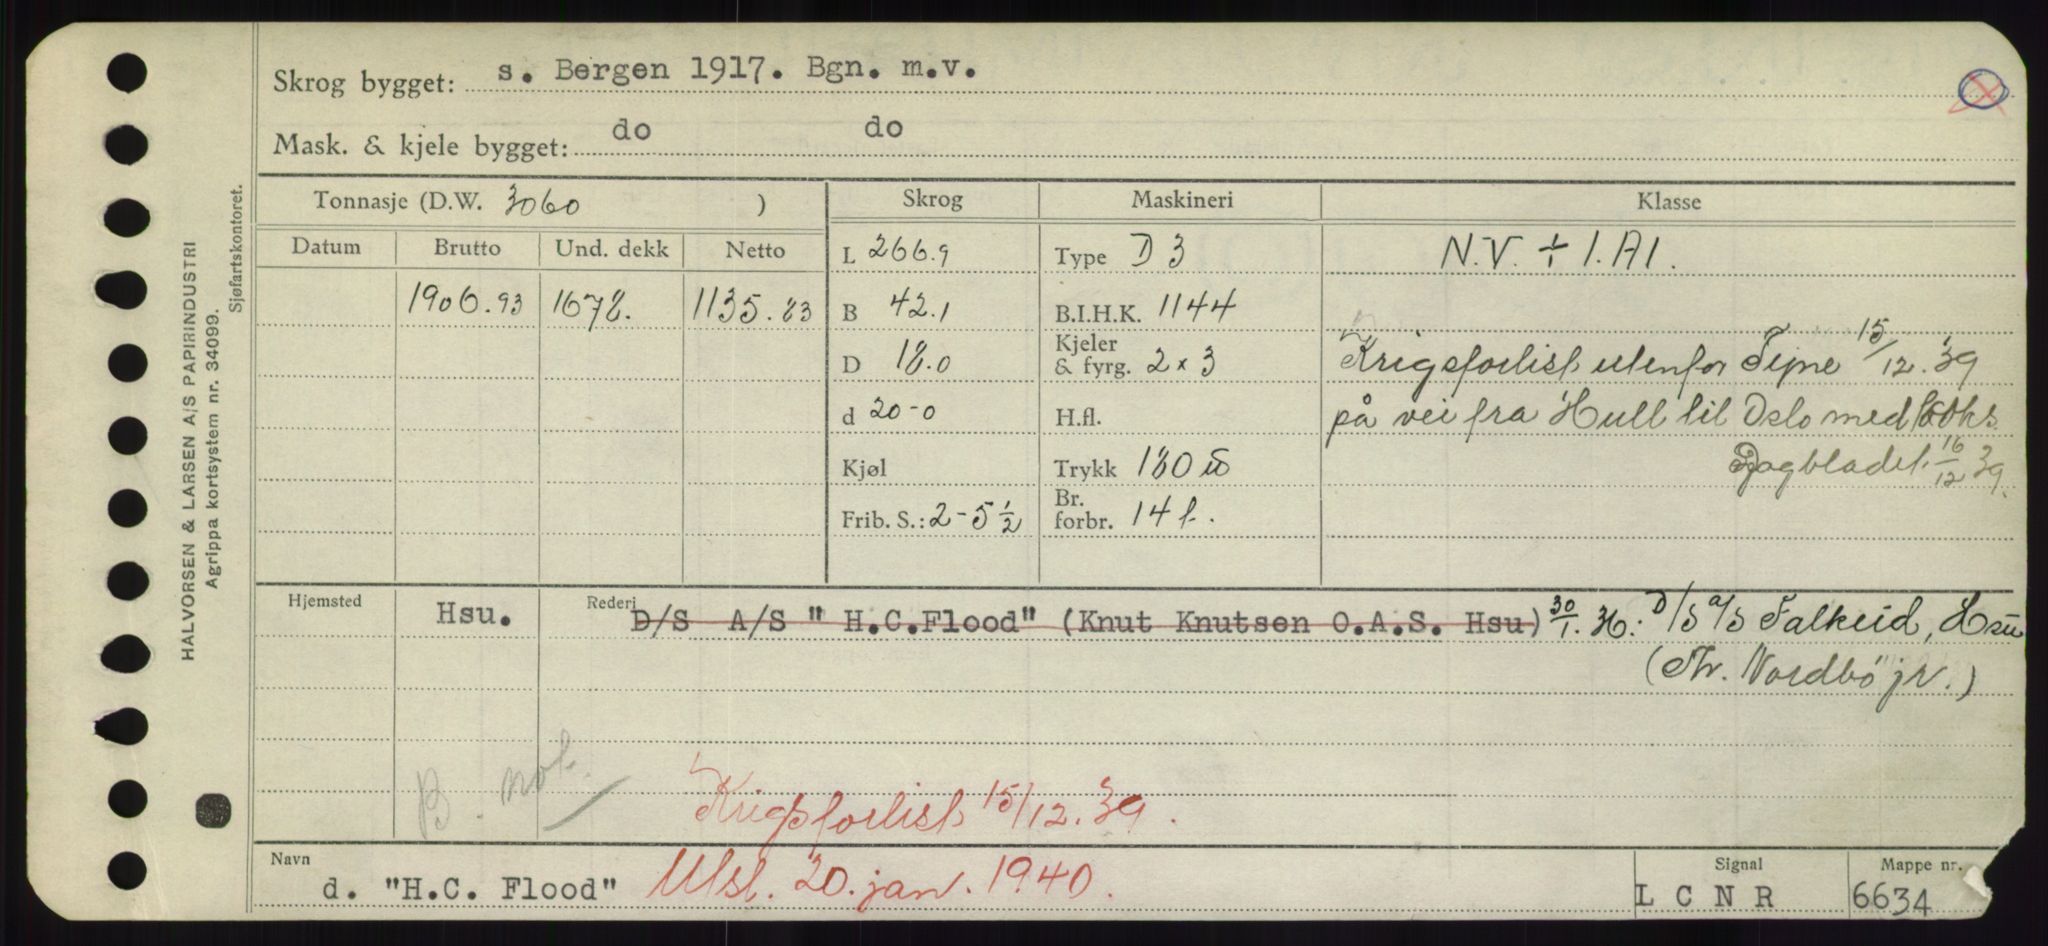 Skrog bygget: s. Bergen 1917. Bgn. m.v.
Mask. & kjele bygget: do do
Tonnasje (D.W. 3060 )
Skrog
Maskineri
Klasse
Datum
Brutto
Und. dekk
Netto
1906.93
1678.
1135.83
L 266.9
B 42.1
D 18.0
d 20-0
Kjøl
Frib. S.: 2-5 1/2
Type D 3
B.I.H.K. 1144
Kjeler
& fyrg. 2 x 3
H.fl.
Trykk 180
Br.
forbr. 14 t.
N.V. + 1.A1.
Krigsforlist utenfor Tyne 15/12.39
på vei fra Hull til Oslo med koks.
Dagbladet 16/12 39.
Hjemsted
Hsu.
Rederi
D/S A/S "H.C.Flood" (Knut Knutsen O.A.S. Hsu) 30/1. D/S a/s Falkeid, Hsu
(Th. Nordbö jr.)
B. not.
Krigsforlist 15/12.39.
Navn
d. "H.C. Flood" Utsl. 20. jan. 1940.
Signal
L C N R
Mappe nr.
6634
HALVORSEN & LARSEN A/S PAPIRINDUSTRI
Agrippa kortsystem nr. 34099.
Sjøfartskontoret.